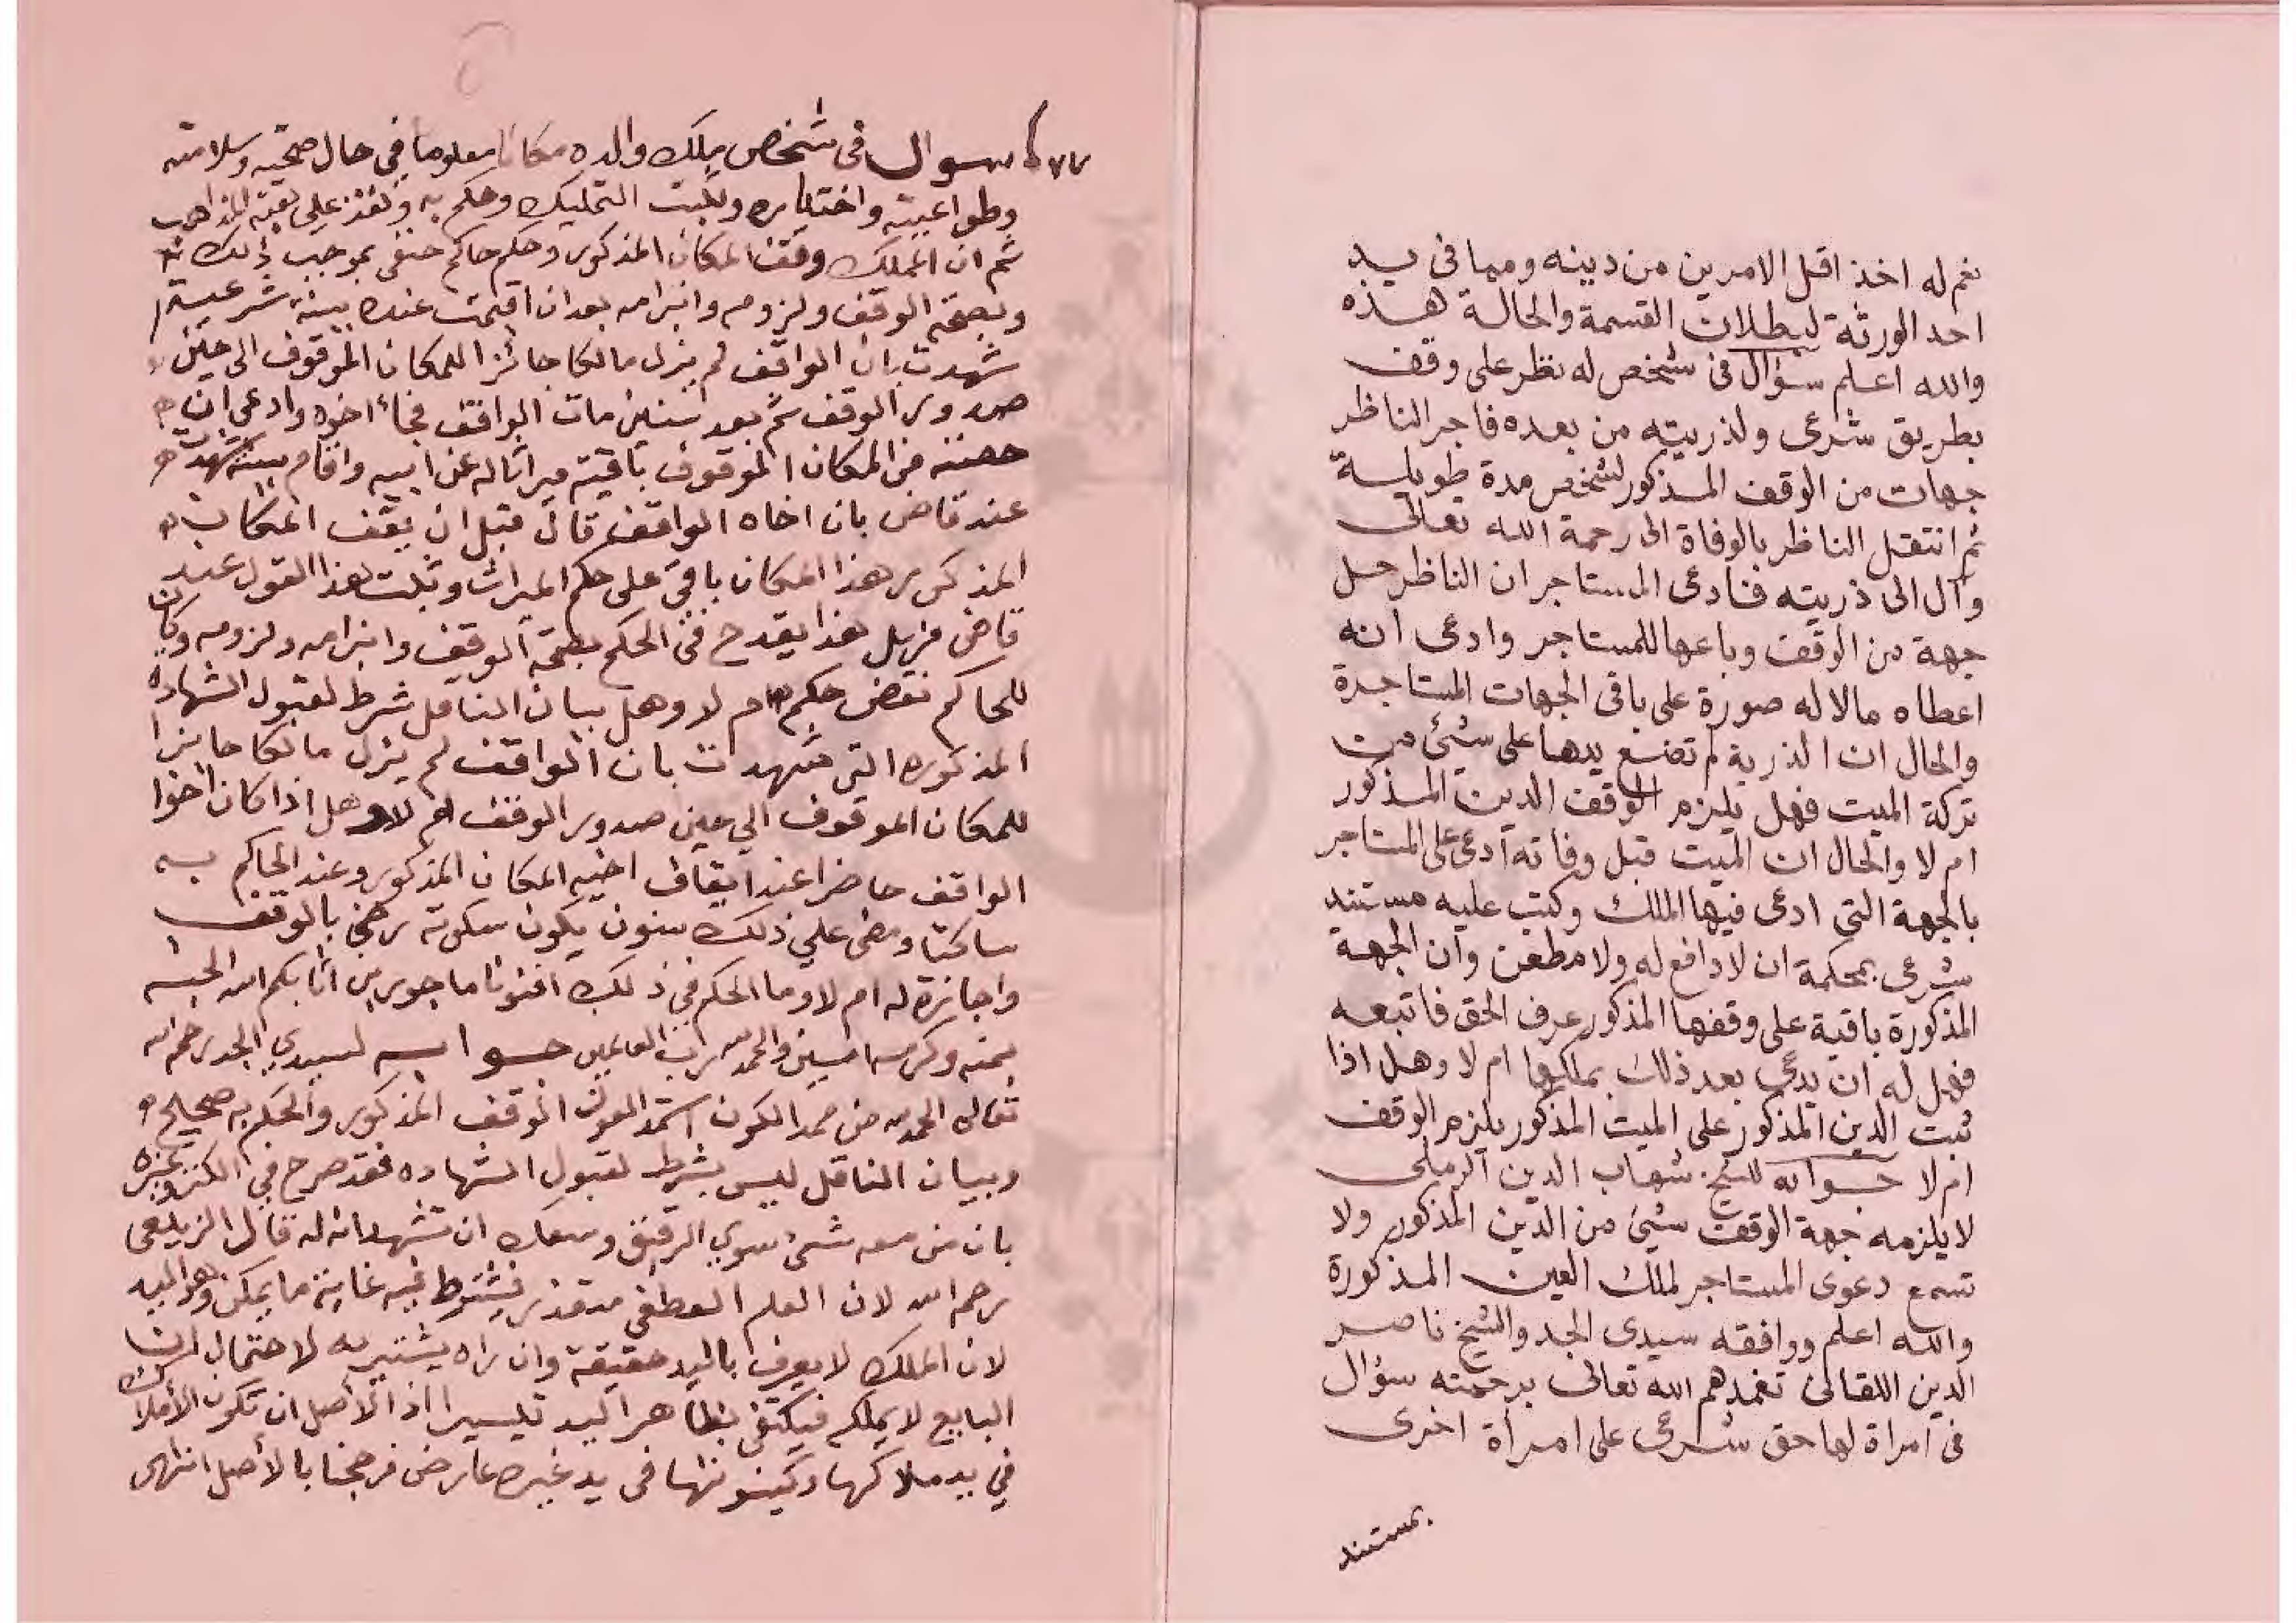 نعم له اخذ اقل الامرين من دينه ومما في يد
احد الورثة لبطلان القسمة والحالة هذه
والله اعلم سؤال في شخص له نظر على وقف
بطريق شرعى ولذريته من بعده فاجر الناظر
جهات من الوقف المذكور لشخص مدة طويلة
ثم انتقل الناظر بالوفاة الى رحمة الله تعالى
وآل الى ذريته فادعى المستاجر ان الناظر حل
جهة من الوقف وباعها للمستاجر وادعى انه
اعطاه مالا له صورة على باقى الجهات المستاجرة
والحال ان الذرية لم تضع يدها على شئ من
تركة الميت فهل يلزم الوقف الدين المذكور
ام لا والحال ان الميت قبل وفاته ادعى على المستاجر
بالجهة التى ادعى فيها الملك وكتب عليه مستند
شرعى بمحكمة ان لا دافع له ولا مطعن وان الجهة
المذكورة باقية على وقفها المذكور عرف الحق فاتبعه
فهل له ان يدعى بعد ذلك بملكها ام لا وهل اذا
ثبت الدين المذكور على الميت المذكور يلزم الوقف
ام لا جوابه للشيخ شهاب الدين الرملى
لا يلزمه جهة الوقف شئ من الدين المذكور ولا
تسمع دعوى المستاجر لملك العين المذكورة
والله اعلم ووافقه سيدى الجد والشيخ ناصر
الدين اللقانى تغمدهم الله تعالى برحمته سؤال
فى امراة لها حق شرعى على امراة اخرى
بمستند
سوال فى شخص ملك والده مكانا معلوما في حال صحته وسلامته
وطواعيته واختياره وثبت التمليك وحكم به ونفذ على بقية المذاهب
ثم ان المملك وقف المكان المذكور وحكم حاكم حنفى بموجب ذلك
وبصحة الوقف ولزومه وانبرامه بعد ان اقيمت عنده بينة شرعية
شهدت بان الواقف لم يزل مالكا حائزا للمكان الموقوف الى حين
صدور الوقف ثم بعد سنين مات الواقف فجاء اخوه وادعى ان
حصته من المكان الموقوف باقية ميراثا له عن ابيه واقام بينة شهدت
عند قاض بان اخاه الواقف قال قبل ان يقف المكان
المذكور هذا المكان باقى على حكم الميراث وثبت هذا القول عند
قاض فهل هذا يقدح فى الحكم بصحة الوقف وانبرامه ولزومه وكان
للحاكم نقض حكم ام لا وهل بيان الناقل شرط لقبول الشهاده
المذكوره التى شهدت بان الواقف لم يزل مالكا حائزا
للمكان الموقوف الى حين صدور الوقف ام لا وهل اذا كان اخوا
الواقف حاضرا عند ايقاف اخيه المكان المذكور وعند الحاكم به
ساكتا ومضى على ذلك سنون يكون سكوته رضى بالوقف
واجازة له ام لا وما الحكم في ذلك افتونا ماجورين اثابكم الله الجنه
بمنه وكرمه امين والحمد لله رب العالمين جوابه لسيدي الجد رحمه الله
تعالى الحمد لله من ممد الكون استمد العون الوقف المذكور والحكم به صحيح
وبيان الناقل ليس بشرط لقبول الشهاده فقد صرح في الكنز وغيره
بان من معه شئ سوى الرقيق وسعك ان تشهد انه له قال الزيلعى
رحمه الله لان العلم القطعى متعذر فيشترط فيه غاية ما يمكن وهو اليد
لان الملك لا يعرف باليد حقيقة وان راه يشتريه لاحتمال ان
البايع لا يملكه فيكتفى بظاهر اليد تيسيرا اذ الاصل ان تكون الاملاك
في يد ملاكها وكينونتها فى يد غيره عارض فرجحنا بالأصل انتهى